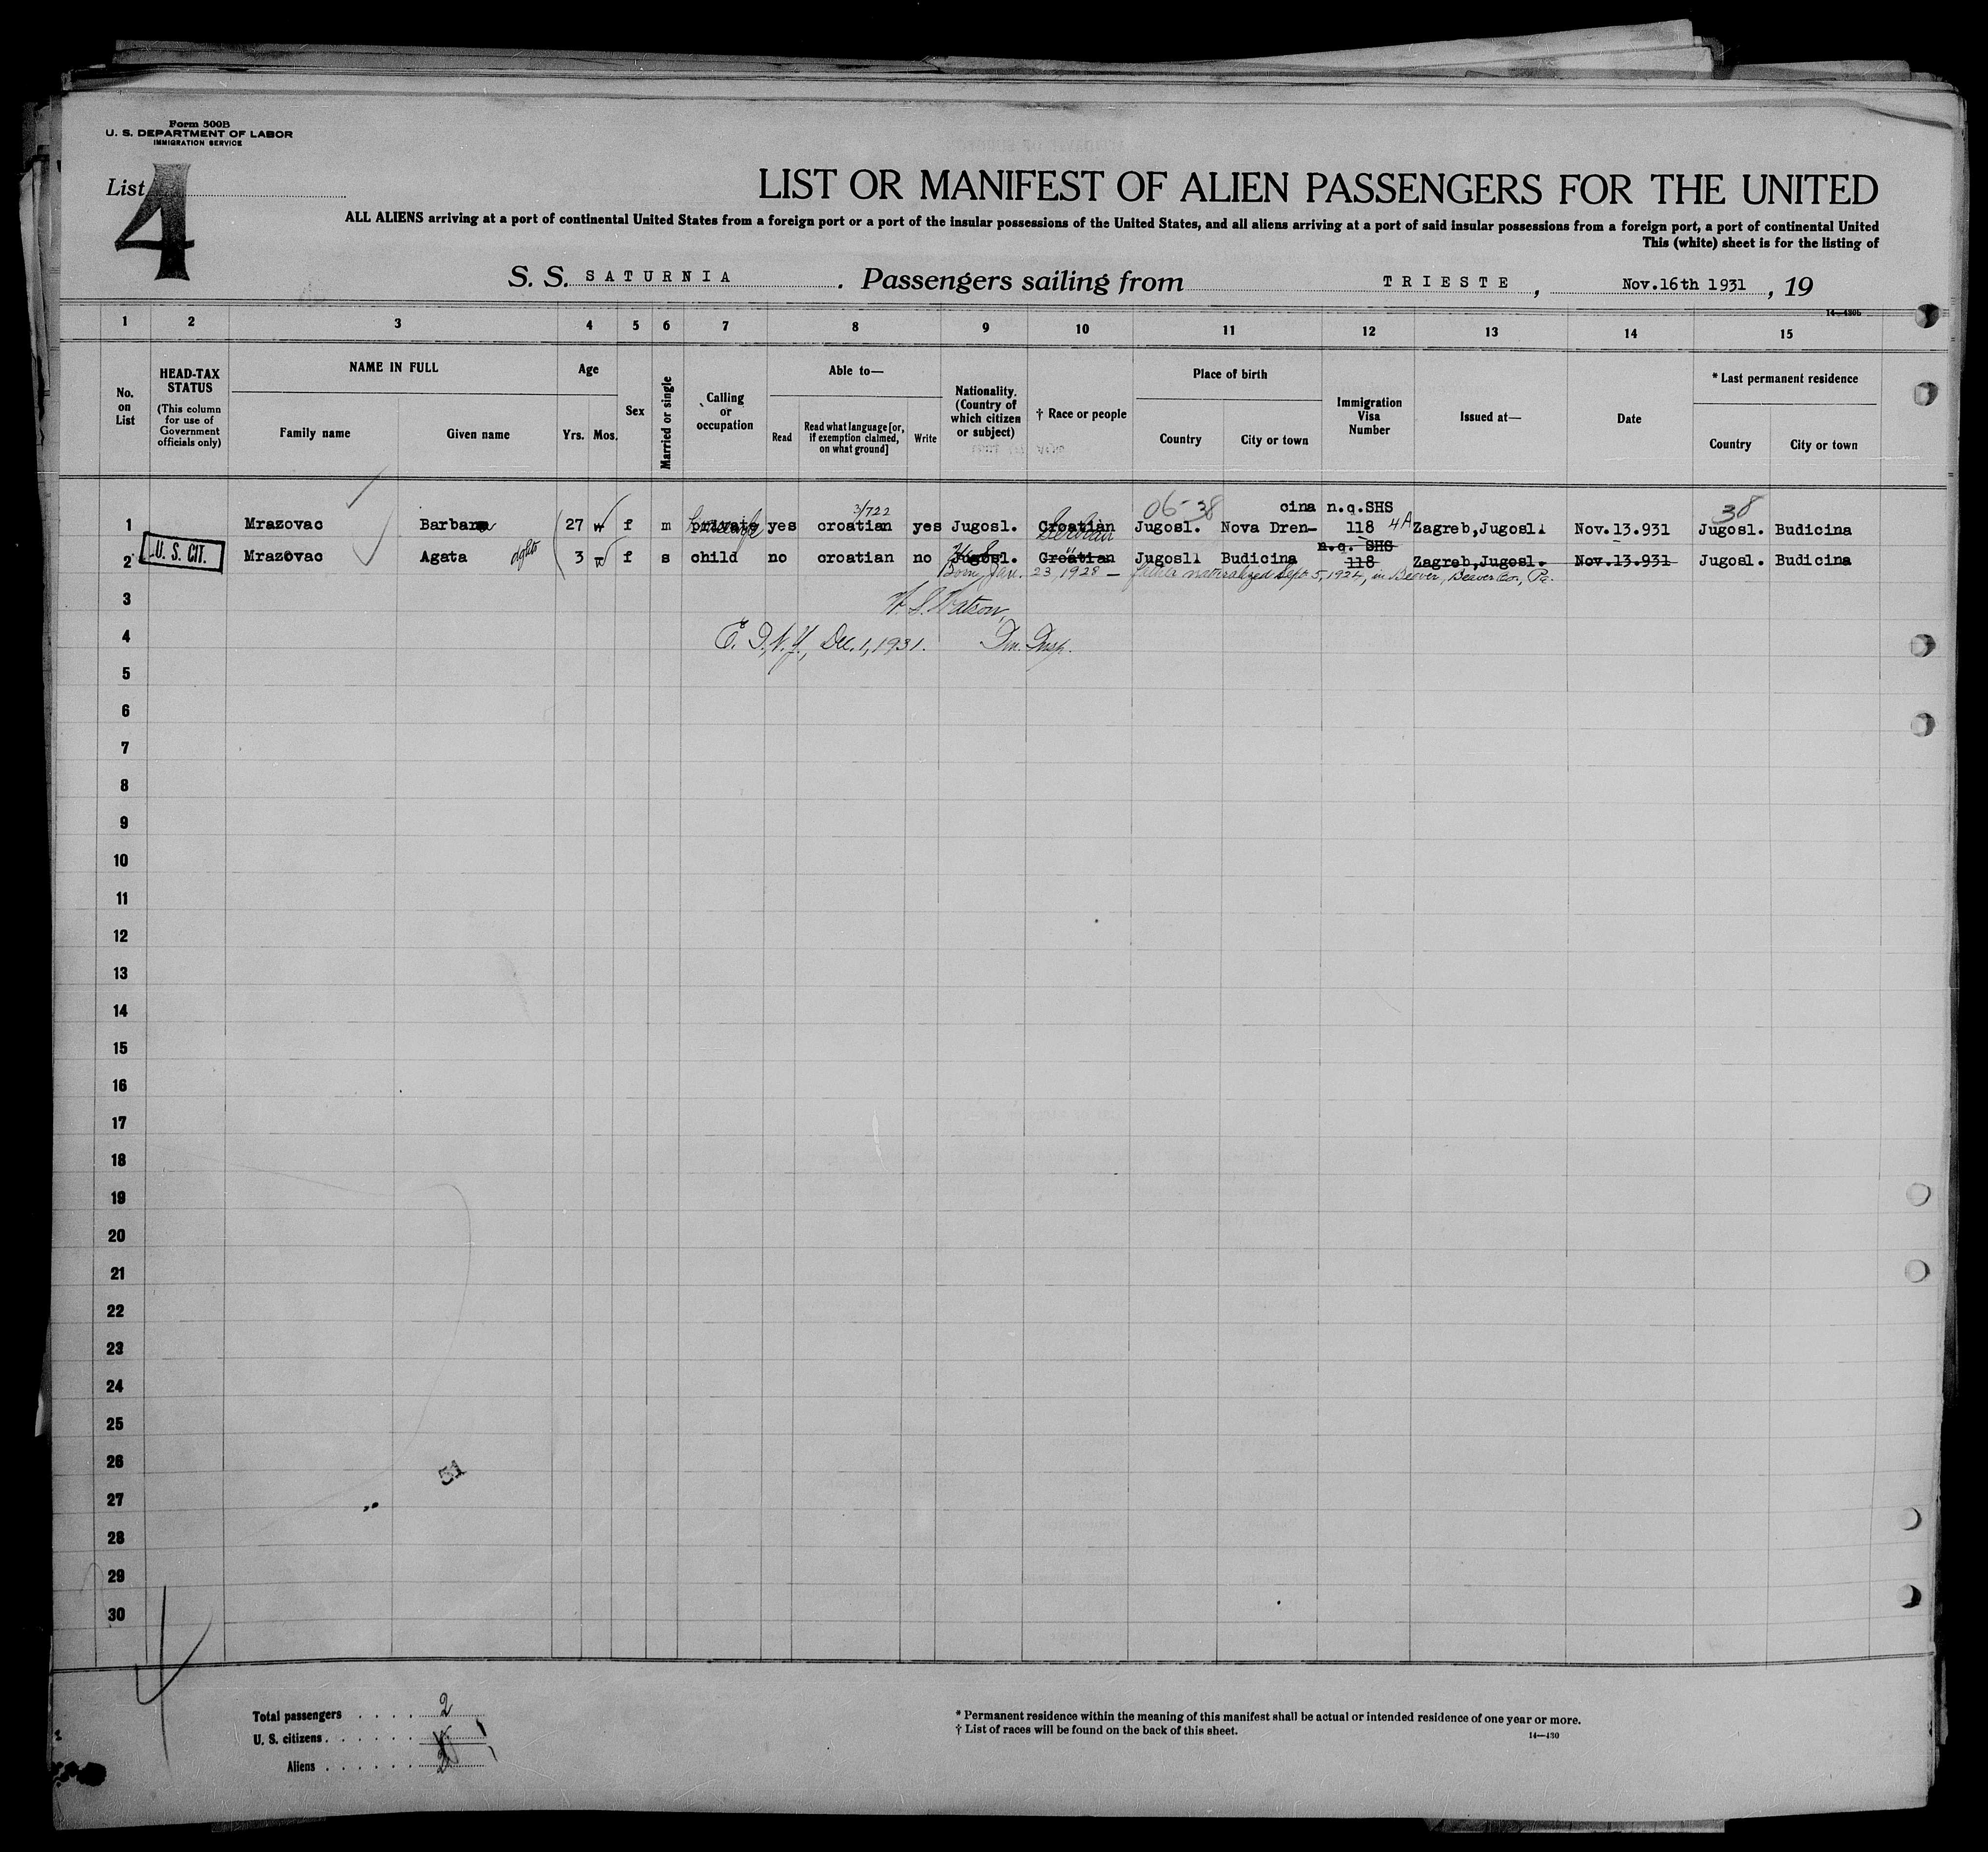 Form 500B
U. S. DEPARTMENT OF LABOR
IMMIGRATION SERVICE
List 4
LIST OR MANIFEST OF ALIEN PASSENGERS FOR THE UNITED
ALL ALIENS arriving at a port of continental United States from a foreign port or a port of the insular possessions of the United States, and all aliens arriving at a port of said insular possessions from a foreign port, a port of continental United
This (white) sheet is for the listing of
S. S. SATURNIA . Passengers sailing from TRIESTE , Nov.16th 1931 , 19
14—430b
1 2 3 4 5 6 7 8 9 10 11 12 13 14 15
No. on List
HEAD-TAX STATUS
(This column for use of Government officials only)
NAME IN FULL
Family name
Given name
Age
Yrs.
Mos.
Sex
Married or single
Calling or occupation
Able to—
Read
Read what language [or, if exemption claimed, on what ground]
Write
Nationality. (Country of which citizen or subject)
† Race or people
Place of birth
Country
City or town
Immigration Visa Number
Issued at—
Date
* Last permanent residence
Country
City or town
3/722 06-38 cina n.q.SHS 38
1 Mrazovac Barbara 27 f m private yes croatian yes Jugosl. Croatian Serbian Jugosl. Nova Dren- 118 4A Zagreb,Jugosl1 Nov.13.931 Jugosl. Budicina
n.q. SHS
2 U. S. CIT. Mrazovac Agata 3 f s child no croatian no Jugosl. Croatian " Jugosl1 Budicina 118 Zagreb,Jugosl. Nov.13.931 Jugosl. Budicina
Born Jan. 23, 1928 — father naturalized Sept. 5, 1924, in Beaver, Beaver Co., Pa.
3 W. S. Watson,
4 E. I, N. Y., Dec. 1, 1931. Im. Insp.
5
6
7
8
9
10
11
12
13
14
15
16
17
18
19
20
21
22
23
24
25
26
51
27
28
29
30
Total passengers . . . . 2
U. S. citizens . . . . . . 1
Aliens . . . . . . 1
* Permanent residence within the meaning of this manifest shall be actual or intended residence of one year or more.
† List of races will be found on the back of this sheet.
14—430